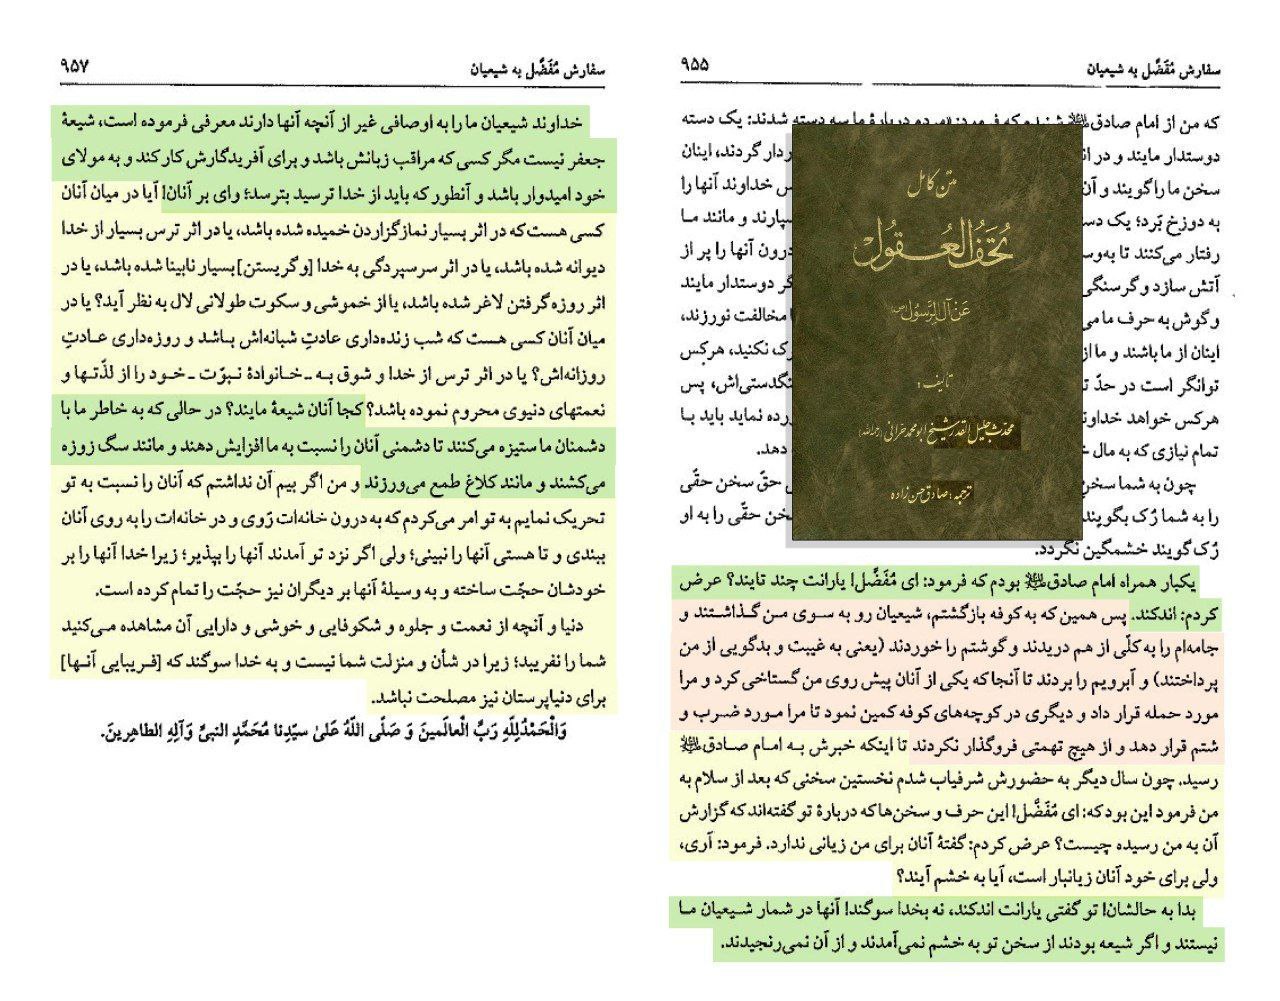 سفارش مُفَضَّل به شیعیان
۹۵۵
که من از امام صادق
دوستدار مایند و در
سخن ما را گویند و آن
به دوزخ بَرد؛ یک دس
رفتار می‌کنند تا به‌وس
آتش سازد و گرسنگی
و گوش به حرف ما می
اینان از ما باشند و ما از
توانگر است در حدّ
هرکس خواهد خداوند
تمام نیازی که به مال
چون به شما سخن
را به شما رُک بگویند
رُک گویند خشمگین نگردد.
مردم دربارهٔ ما سه دسته شدند: یک دسته
ردار گردند، اینان
س خداوند آنها را
سپارند و مانند ما
درون آنها را پر از
گر دوستدار مایند
ما مخالفت نورزند،
رک نکنید، هرکس
نگدستی‌اش، پس
رده نماید باید با
دهد.
حقّ سخن حقّی
خن حقّی را به او
متن کامل
تُحَفُ العُقُول
عَن آلِ الرَّسُول (ص)
تألیف:
محدث جلیل القدر شیخ ابو محمد حرانی (رحمه الله)
ترجمه: صادق حسن زاده
یکبار همراه امام صادق علیه السلام بودم که فرمود: ای مُفَضَّل! یارانت چند تایند؟ عرض
کردم: اندکند. پس همین که به کوفه بازگشتم، شیعیان رو به سوی من گذاشتند و
جامه‌ام را به کلّی از هم دریدند و گوشتم را خوردند (یعنی به غیبت و بدگویی از من
پرداختند) و آبرویم را بردند تا آنجا که یکی از آنان پیش روی من گستاخی کرد و مرا
مورد حمله قرار داد و دیگری در کوچه‌های کوفه کمین نمود تا مرا مورد ضرب و
شتم قرار دهد و از هیچ تهمتی فروگذار نکردند تا اینکه خبرش به امام صادق علیه السلام
رسید. چون سال دیگر به حضورش شرفیاب شدم نخستین سخنی که بعد از سلام به
من فرمود این بود که: ای مُفَضَّل! این حرف و سخن‌ها که دربارهٔ تو گفته‌اند که گزارش
آن به من رسیده چیست؟ عرض کردم: گفتهٔ آنان برای من زیانی ندارد. فرمود: آری،
ولی برای خود آنان زیانبار است، آیا به خشم آیند؟
بدا به حالشان! تو گفتی یارانت اندکند، نه بخدا سوگند! آنها در شمار شیعیان ما
نیستند و اگر شیعه بودند از سخن تو به خشم نمی‌آمدند و از آن نمی‌رنجیدند.
سفارش مُفَضَّل به شیعیان
۹۵۷
خداوند شیعیان ما را به اوصافی غیر از آنچه آنها دارند معرفی فرموده است، شیعهٔ
جعفر نیست مگر کسی که مراقب زبانش باشد و برای آفریدگارش کار کند و به مولای
خود امیدوار باشد و آنطور که باید از خدا ترسید بترسد؛ وای بر آنان! آیا در میان آنان
کسی هست که در اثر بسیار نمازگزاردن خمیده شده باشد، یا در اثر ترس بسیار از خدا
دیوانه شده باشد، یا در اثر سرسپردگی به خدا [و گریستن] بسیار نابینا شده باشد، یا در
اثر روزه گرفتن لاغر شده باشد، یا از خموشی و سکوت طولانی لال به نظر آید؟ یا در
میان آنان کسی هست که شب زنده‌داری عادتِ شبانه‌اش باشد و روزه‌داری عادتِ
روزانه‌اش؟ یا در اثر ترس از خدا و شوق به ـ خانوادهٔ نبوّت ـ خود را از لذّتها و
نعمتهای دنیوی محروم نموده باشد؟ کجا آنان شیعهٔ مایند؟ در حالی که به خاطر ما با
دشمنان ما ستیزه می‌کنند تا دشمنی آنان را نسبت به ما افزایش دهند و مانند سگ زوزه
می‌کشند و مانند کلاغ طمع می‌ورزند و من اگر بیم آن نداشتم که آنان را نسبت به تو
تحریک نمایم به تو امر می‌کردم که به درون خانه‌ات رَوی و در خانه‌ات را به روی آنان
ببندی و تا هستی آنها را نبینی؛ ولی اگر نزد تو آمدند آنها را بپذیر؛ زیرا خدا آنها را بر
خودشان حجّت ساخته و به وسیلهٔ آنها بر دیگران نیز حجّت را تمام کرده است.
دنیا و آنچه از نعمت و جلوه و شکوفایی و خوشی و دارایی آن مشاهده می‌کنید
شما را نفریبد؛ زیرا در شأن و منزلت شما نیست و به خدا سوگند که [فریبایی آنها]
برای دنیاپرستان نیز مصلحت نباشد.
وَالْحَمْدُلِلّهِ رَبِّ الْعالَمینَ وَ صَلَّی اللّهُ عَلیٰ سیّدِنا مُحَمَّدٍ النبیِّ وَآلِهِ الطاهِرینَ.